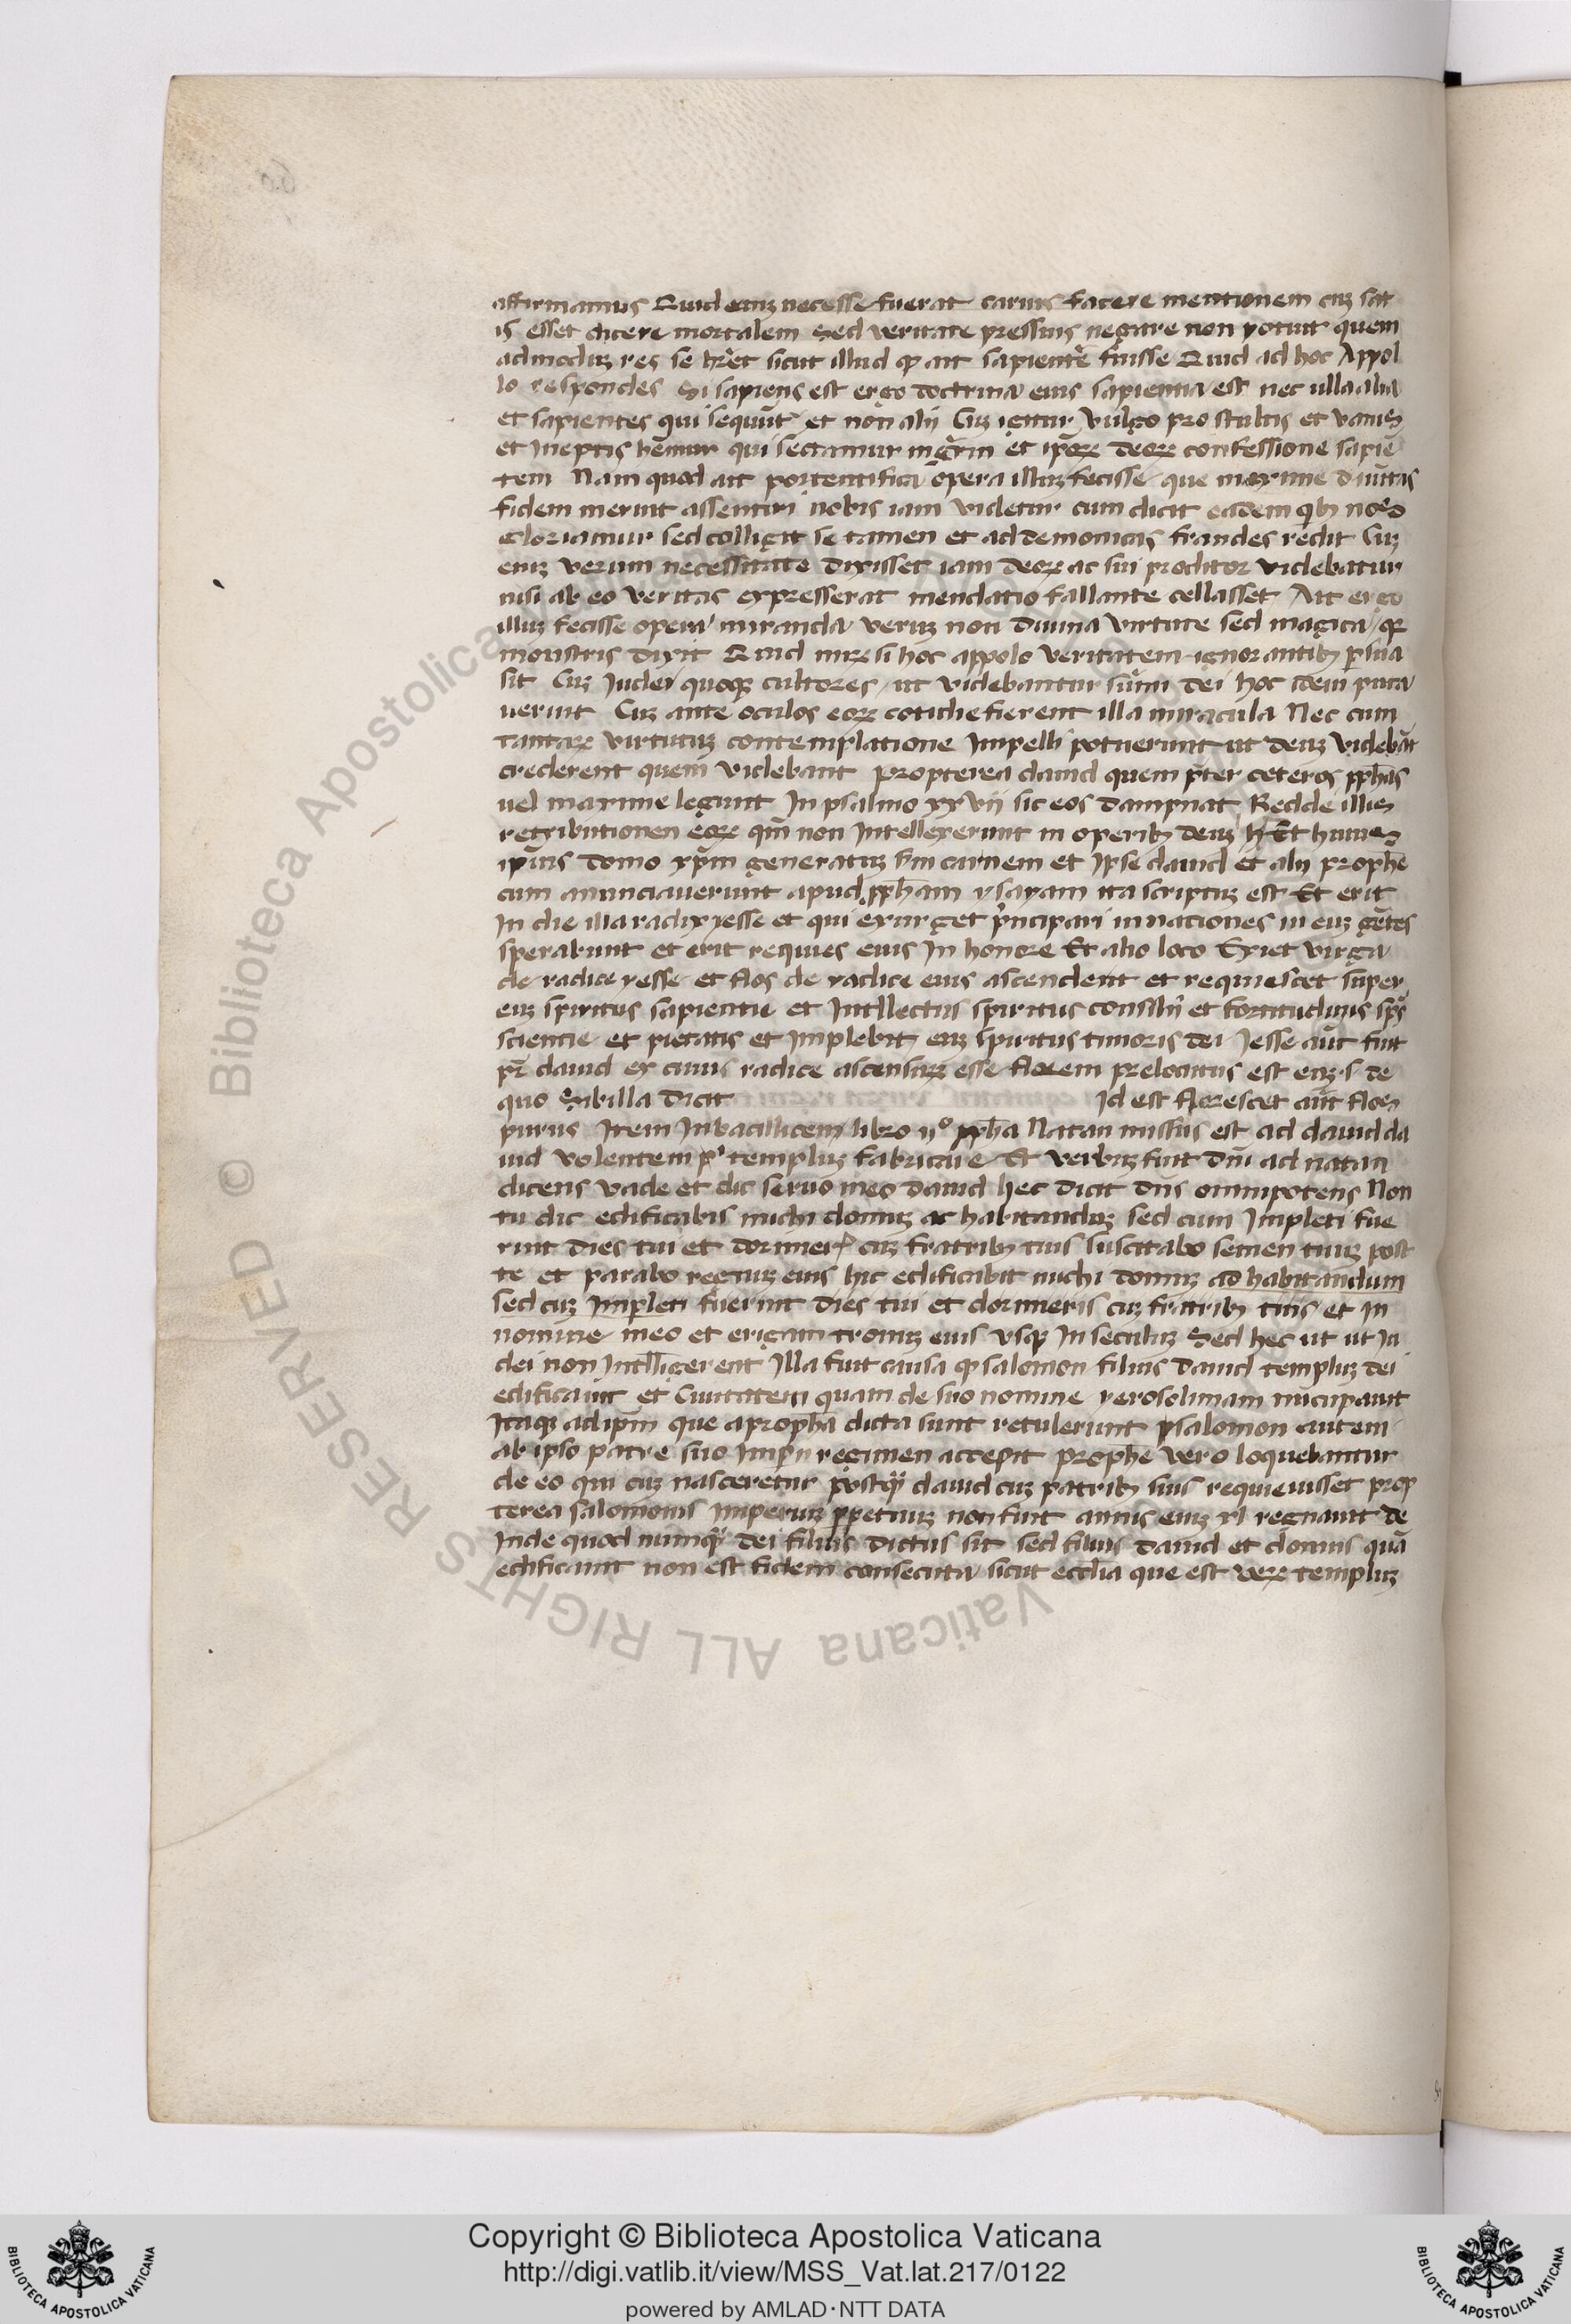 affirmamus Quid enīz necesse fuerat carnis facere mentionem cuz sat
is esset dicere mortalem Sed veritate pressus negare non potuit quem
admoduz res se hr̄et sicut illud qꝫ ait sapientē fuisse Quid ad hoc Appol
lo respondes Si sapiens est ergo doctrina eius sapientia est nec ulla alia
et sapientes qui sequūt᷑ et non alij Cuz igitur vulgo pro stultis et vanis
et ineptis hēmur qui sectamur mḡrm et ip̄oꝝ deoꝝ confessione sapiē
tem Nam quod ait portentifica opera illuz fecisse que maxime diuitās
fidem meruit assentiri nobis iam videtur cum dicit eadem qbꝫ nos
Gloriamur sed colligit se tamen et ad demonicas fraudes redit Cuz
enīz verum necessitate dixisset iam deoꝝ ac sui proditor videbatur
nisi ab eo veritas expresserat mendatio fallante cellasset Ait ergo
illuz fecisse opera miranda veruz non diuina virtute sed magica qꝫ
monstris dixit Quid miꝝ si hoc appolo veritatem ignorantibꝫ ꝑsua
sit Cuz Iudei quoqꝫ cultores ut videbantur sūmi dei hoc idem puta
uerint Cuz ante oculos eoꝝ cotidie fierent illa miracula Nec cum
tantaꝝ virtutuz contemplatione Impelli potuerunt ut deuz videbāt
crederent quem videbant propterea dauid quem p̄ter ceteros ꝓph̄as
uel maxime legunt In psalmo xxvij sic eos dampnat Redde illis
retributionem eoꝝ qm̄ non Intellexerunt in operibꝫ deuz Et huius
ipsius domo xp̄m generatuz scd̄m carnem et Ipse dauid et alij prophē
cum anunciauerunt apud ꝓph̄am ysayam ita scriptuz est Et erit
In die illa radix yesse et qui exurget p̄ncipari in nationes in euz gētes
sperabunt et erit requies eius In honore Et alio loco Exiet virga
de radice yesse et flos de radice eius ascendent et requiescet super
euz spiritus sapientie et Intllectus spiritus consilij et fortitudinis sps̄
scientie et pietatis et Implebit euz spiritus timoris dei Jesse aūt fuit
pr̄ dauid ex cuius radice ascensuꝝ esse florem prelocutus est euz .s. de
quo Sibilla dicit Id est florescet aūt flos
purus Item In bacillicem libro ij° ꝓph̄a Natan missus est ad dauid da
uid volentem p° templuz fabricare Et verbuz fuit dn̄i ad natan
dicens vade et dic seruo meo dauid hec dicit dn̄s omnipotens Non
tu dic edificabis michi domuz ac habitanduz sed cum Impleti fue
rint dies tui et dormieris cuz fratribꝫ tuis suscitabo semen tuuz post
te et parabo regnuz eius hic edificabit michi domuz ad habitandum
sed cuz Impleti fuerint dies tui et dormieris cuz fratribꝫ tuis et in
nomine meo et erigam tronuz eius vsqꝫ In seculuz Sed hec ut ut Iu
dei non Intlligerent Illa fuit causa qꝫ salomon filius dauid templuz dei
edificauit et Ciuitatem quam de suo nomine yerosolimam nūcupauit
Itaqꝫ ad ip̄m que a propha dicta sunt retulerunt psalomon autem
ab ipso patre suo Imperij regimen accepit prophē vero loquebantur
de eo qui cuz nasceretur postqꝫ dauid cuz patribꝫ suis requieuisset prop
terea salomonis Imperiuz ꝑpetuuz non fuit annis enīz xl regnauit De
Inde quod numqꝫ dei filius dictus sit sed filius dauid et domus quā
edificauit non est fidem consecuta sicut eccl̄ia que est veꝝ templuz
© Biblioteca Apostolica Vaticana ALL RIGHTS RESERVED
Copyright © Biblioteca Apostolica Vaticana
http://digi.vatlib.it/view/MSS_Vat.lat.217/0122
powered by AMLAD·NTT DATA
BIBLIOTECA APOSTOLICA VATICANA
BIBLIOTECA APOSTOLICA VATICANA